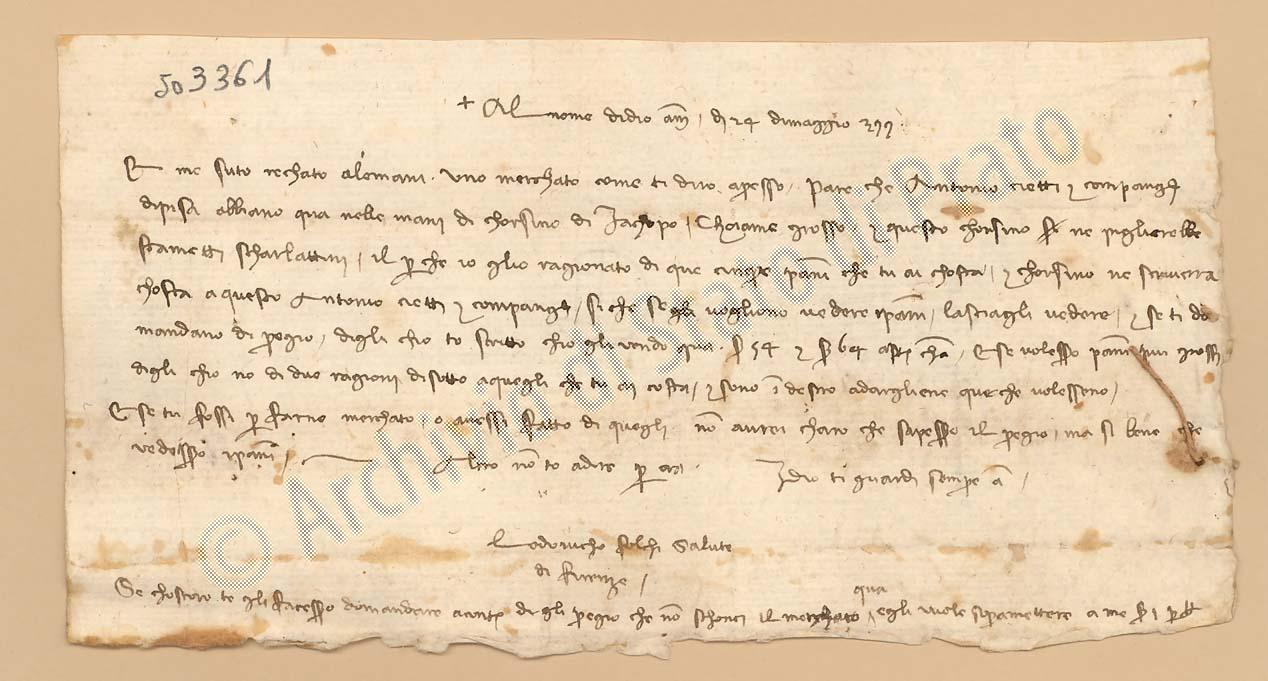 503361
+ Al nome di dio am, dì 24 di maggio 399.
E me suto rechato alemani uno merchato come ti dirò apresso. Pare che Antonio cietti e compangni
di pisa abbiano qua nelle mani di chorsino di Jachopo, Choiame grosso, e questo chorsino se ne piglierebbe
stametti scharlattini, il perche io glio ragionato di que cinque panni che tu ai chosta, e chorsino ne scriverra
chosta a questo Antonio cietti e compangni, si che se egli vogliono vedere i panni, lasciagli vedere, e se ti do
mandano di pregio, digli chio to scritto chio gli vendo qua f 54 e f 64 E se volesso panni piu grossi
digli chio no di due ragioni di sotto a quegli che tu ai costa, e sono in destro a dargliene que che volesseno,
E se tu fossi per farne merchato, o avessi fatto di quegli non avrei charo che sapesse il pregio, ma si bene che
vedesso i panni, Altro non to a dire per ora. Idio ti guardi sempre
Lodovicho folchi salute
di firenze,
Se chostoro te gli facesso domandare digli pregio che non schonci il merchato qua, egli vuole a me
© Archivio di Stato di Prato